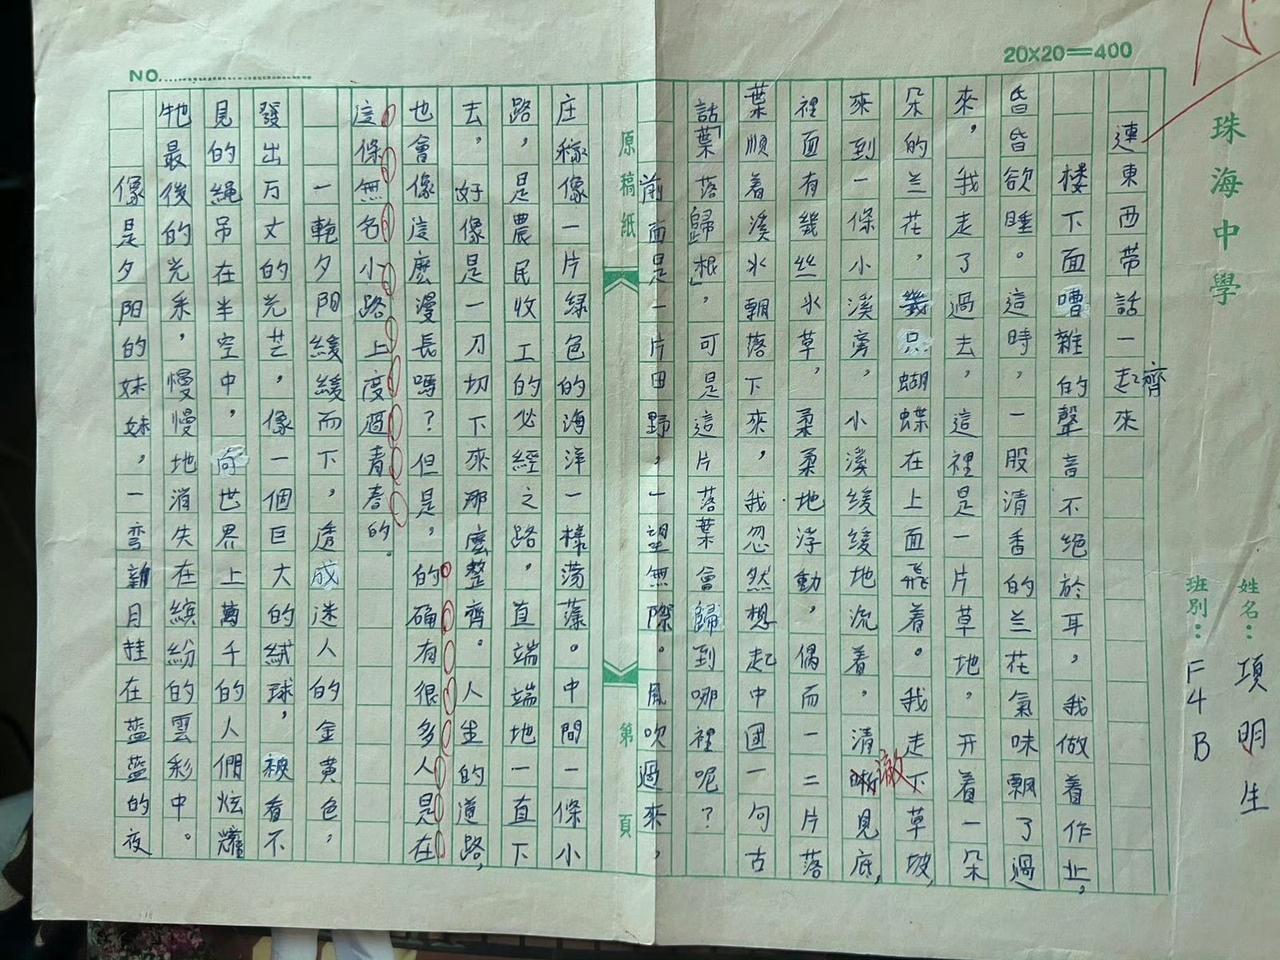 20X20=400
NO.
珠海中學
姓名：項明生
班別：F4B
連東西帶話一起齊來
楼下面嘈雜的聲音不绝於耳，我做着作业，
昏昏欲睡。這時，一股清香的兰花氣味飄了過
來，我走了過去，這裡是一片草地，开着一朵
朵的兰花，幾只蝴蝶在上面飛着。我走下草坡，
來到一條小溪旁，小溪緩緩地流着，清澈見底，
裡面有幾丝水草，柔柔地浮動，偶而一二片落
葉順着溪水飄落下來，我忽然想起中國一句古
話「葉落歸根」，可是這片落葉會歸到哪裡呢？
前面是一片田野，一望無際。風吹過來，
原稿紙
第 頁
庄稼像一片绿色的海洋一樣荡藻。中間一條小
路，是農民收工的必經之路，直端端地一直下
去，好像是一刀切下來那麼整齊。人生的道路，
也會像這麽漫長嗎？但是，的确有很多人是在
這條無名小路上度過青春的。
一輪夕阳緩緩而下，透成迷人的金黄色，
發出万丈的光芒，像一個巨大的絨球，被看不
見的繩吊在半空中，向世界上萬千的人們炫耀
牠最後的光釆，慢慢地消失在缤紛的雲彩中。
像是夕阳的妹妹，一弯新月挂在蓝蓝的夜